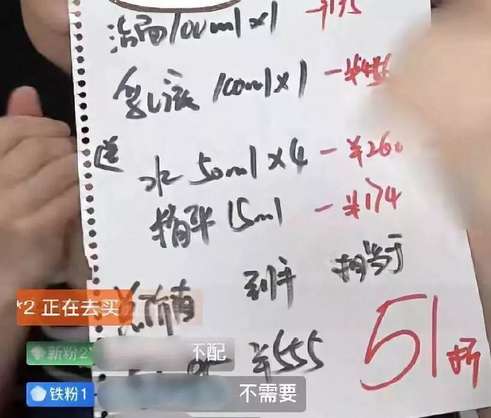 洁面100ml×1 —¥195
乳液100ml×1 —¥456
送
水50ml×4 —¥260
精华15ml —¥174
总价值 到手 相当于
¥555 51折
*2 正在去买
新粉2 不配
铁粉1 不需要